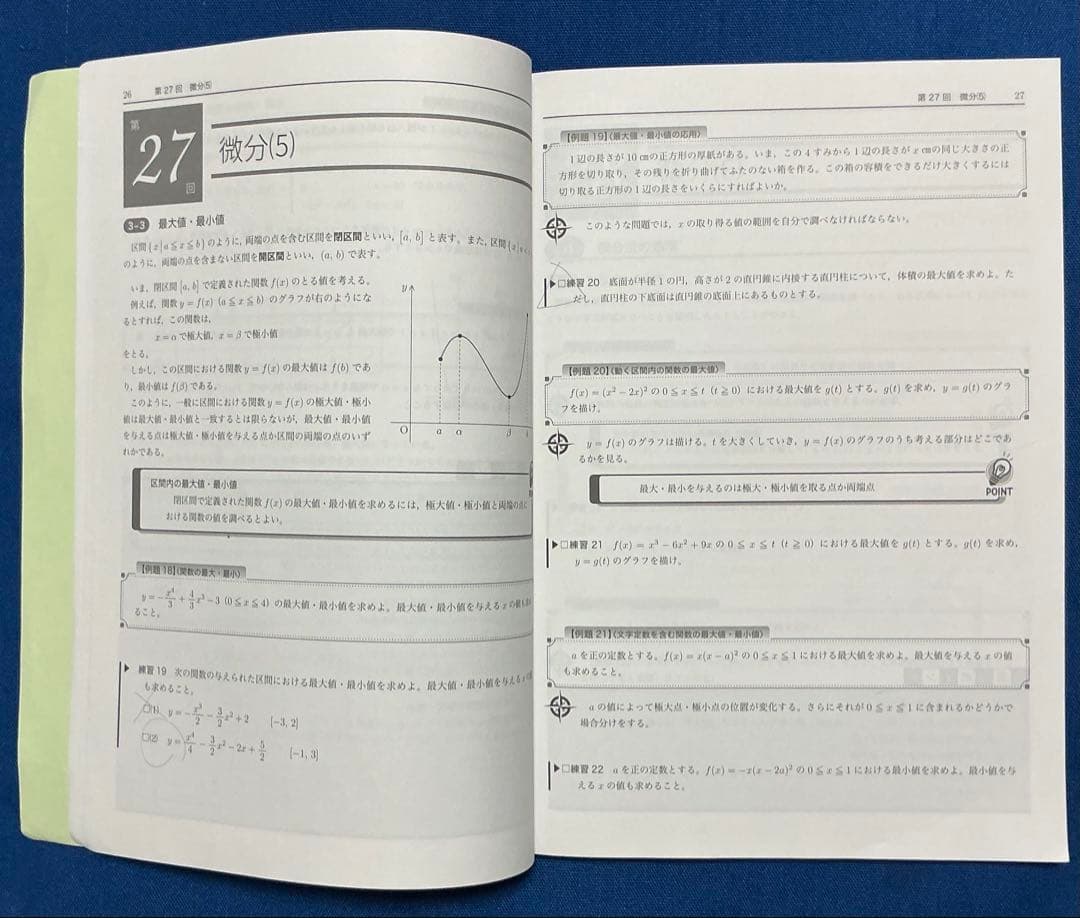 26 第27回 微分(5)
第
27
回
微分(5)
3-3 最大値・最小値
区間{x|a≦x≦b}のように,両端の点を含む区間を閉区間といい,[a, b]と表す。また,区間{x|a<
のように,両端の点を含まない区間を開区間といい,(a, b)で表す。
いま,閉区間[a, b]で定義された関数f(x)のとる値を考える。
例えば,関数y=f(x) (a≦x≦b)のグラフが右のようにな
るとすれば,この関数は,
x=αで極大値, x=βで極小値
をとる。
しかし,この区間における関数y=f(x)の最大値はf(b)であ
り,最小値はf(β)である。
このように,一般に区間における関数y=f(x)の極大値・極小
値は最大値・最小値と一致するとは限らないが,最大値・最小値
を与える点は極大値・極小値を与える点か区間の両端の点のいず
れかである。
y
O a α β
区間内の最大値・最小値
閉区間で定義された関数f(x)の最大値・最小値を求めるには,極大値・極小値と両端の点に
おける関数の値を調べるとよい。
【例題18】〈関数の最大・最小〉
y=-x⁴/3+4/3x³-3 (0≦x≦4)の最大値・最小値を求めよ。最大値・最小値を与えるxの値も求め
ること。
練習19 次の関数の与えられた区間における最大値・最小値を求めよ。最大値・最小値を与えるxの
も求めること。
□(1) y=-x³/2-3/2x²+2 [-3, 2]
□(2) y=x⁴/4-3/2x²-2x+5/2 [-1, 3]
第27回 微分(5) 27
【例題19】〈最大値・最小値の応用〉
1辺の長さが10㎝の正方形の厚紙がある。いま,この4すみから1辺の長さがx㎝の同じ大きさの正
方形を切り取り,その残りを折り曲げてふたのない箱を作る。この箱の容積をできるだけ大きくするには
切り取る正方形の1辺の長さをいくらにすればよいか。
このような問題では,xの取り得る値の範囲を自分で調べなければならない。
□練習20 底面が半径1の円,高さが2の直円錐に内接する直円柱について,体積の最大値を求めよ。た
だし,直円柱の下底面は直円錐の底面上にあるものとする。
【例題20】〈動く区間内の関数の最大値〉
f(x)=(x²-2x)²の0≦x≦t (t≧0)における最大値をg(t)とする。g(t)を求め,y=g(t)のグラ
フを描け。
y=f(x)のグラフは描ける。tを大きくしていき,y=f(x)のグラフのうち考える部分はどこであ
るかを見る。
最大・最小を与えるのは極大・極小値を取る点か両端点
POINT
□練習21 f(x)=x³-6x²+9xの0≦x≦t (t≧0)における最大値をg(t)とする。g(t)を求め,
y=g(t)のグラフを描け。
【例題21】〈文字定数を含む関数の最大値・最小値〉
aを正の定数とする。f(x)=x(x-a)²の0≦x≦1における最大値を求めよ。最大値を与えるxの値
も求めること。
aの値によって極大点・極小点の位置が変化する。さらにそれが0≦x≦1に含まれるかどうかで
場合分けをする。
□練習22 aを正の定数とする。f(x)=-x(x-2a)²の0≦x≦1における最小値を求めよ。最小値を与
えるxの値も求めること。